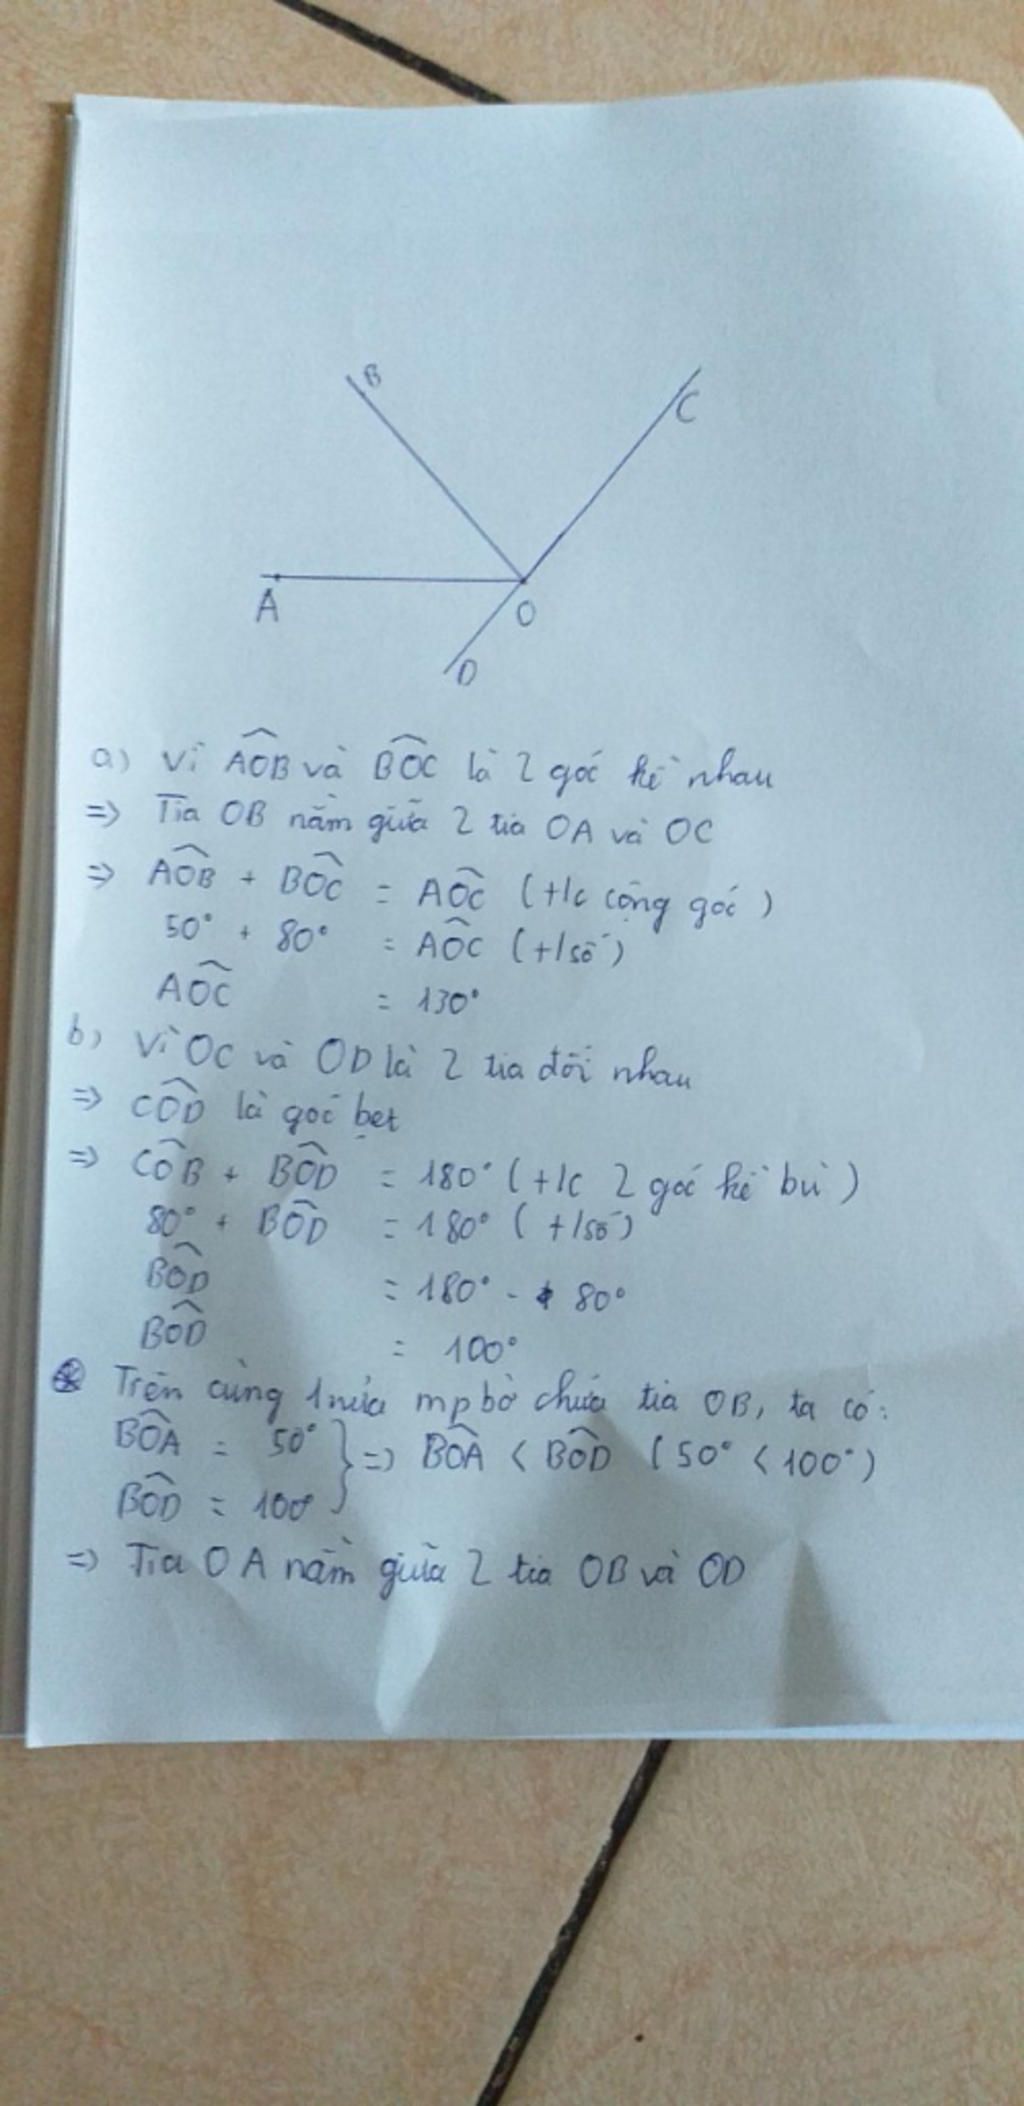 B
C
A
O
D
a) Vì AÔB và BÔC là 2 góc kề nhau
=> Tia OB nằm giữa 2 tia OA và OC
=> AÔB + BÔC = AÔC (+/c cộng góc)
50° + 80° = AÔC (+/số)
AÔC = 130°
b) Vì OC và OD là 2 tia đối nhau
=> CÔD là góc bẹt
=> CÔB + BÔD = 180° (+/c 2 góc kề bù)
80° + BÔD = 180° (+/số)
BÔD = 180° - 80°
BÔD = 100°
Trên cùng 1 nửa mp bờ chứa tia OB, ta có:
BÔA = 50° } => BÔA < BÔD (50° < 100°)
BÔD = 100°
=> Tia OA nằm giữa 2 tia OB và OD